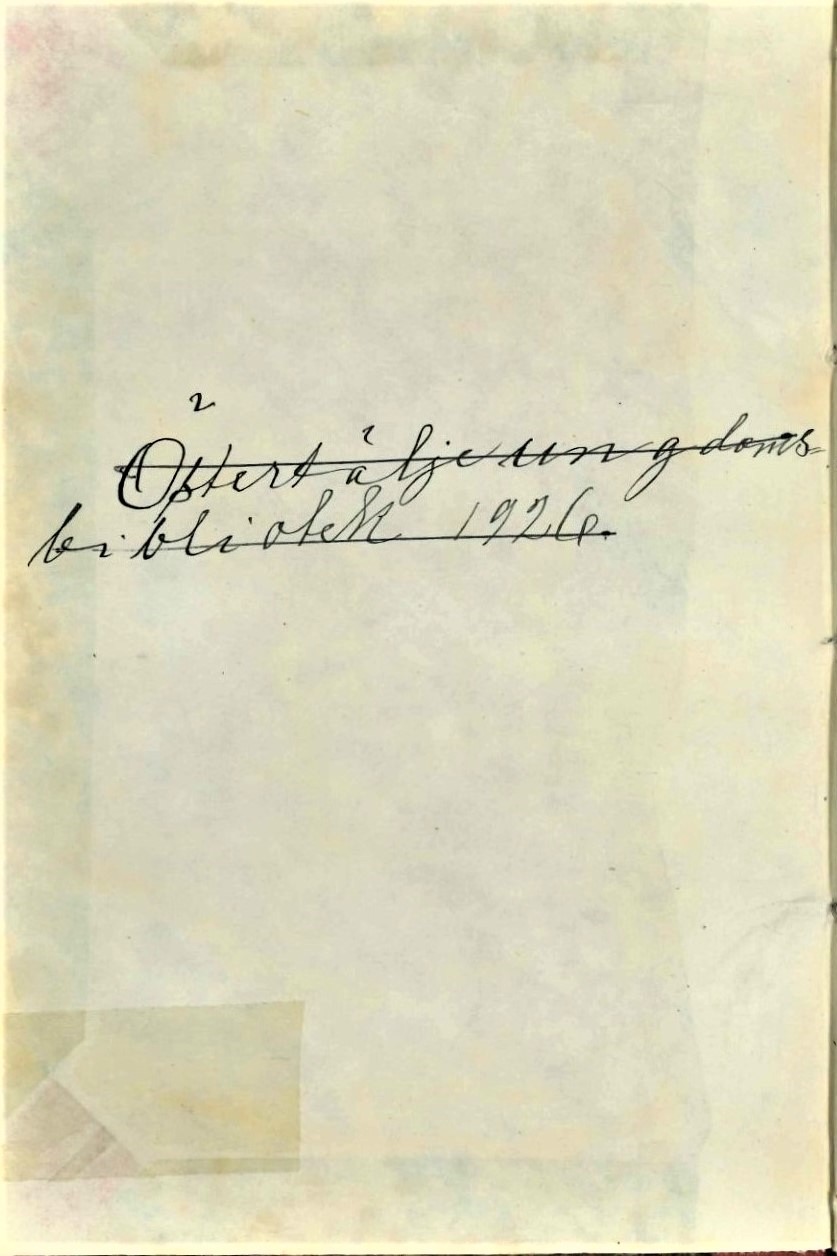 Östertälje ungdoms-
bibliotek 1926.